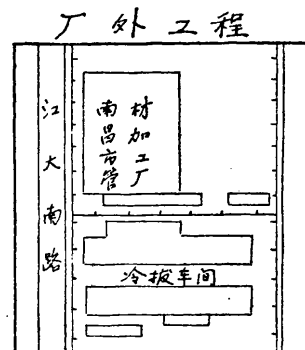 厂外工程
江大南路
南昌市管
材加工厂
冷拔车间